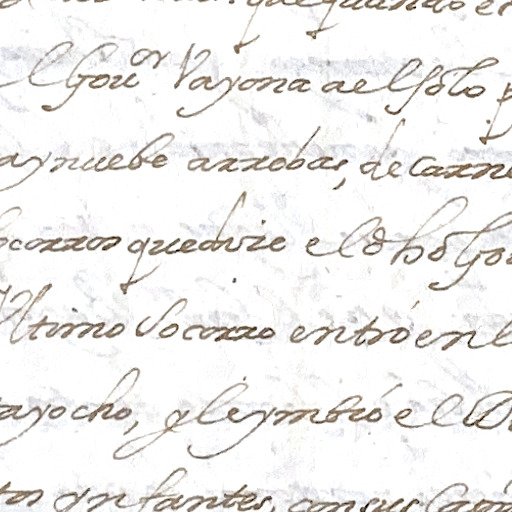 que quando e
el Gou.or Vayona ael solo p
ay nuebe arrobas, de carne
socorros que dize el dho Gou
Ultimo Socorro entró en l
ayocho, y le ymbió el D
tos ynfantes, con sus Cap